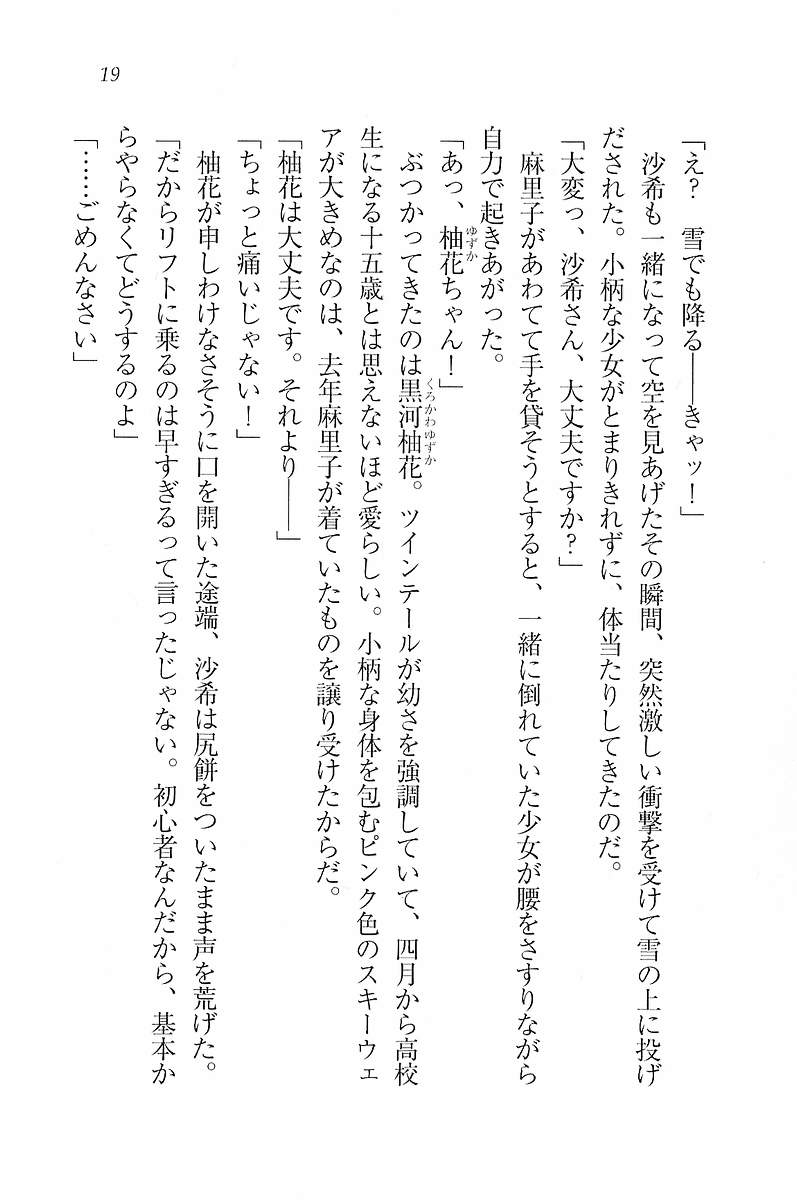 19
「え？　雪でも降る――きゃッ！」
　沙希も一緒になって空を見あげたその瞬間、突然激しい衝撃を受けて雪の上に投げ
だされた。小柄な少女がとまりきれずに、体当たりしてきたのだ。
「大変っ、沙希さん、大丈夫ですか？」
　麻里子があわてて手を貸そうとすると、一緒に倒れていた少女が腰をさすりながら
自力で起きあがった。
「あっ、柚花ゆずかちゃん！」
　ぶつかってきたのは黒河柚花くろかわゆずか。ツインテールが幼さを強調していて、四月から高校
生になる十五歳とは思えないほど愛らしい。小柄な身体を包むピンク色のスキーウェ
アが大きめなのは、去年麻里子が着ていたものを譲り受けたからだ。
「柚花は大丈夫です。それより――」
「ちょっと痛いじゃない！」
　柚花が申しわけなさそうに口を開いた途端、沙希は尻餅をついたまま声を荒げた。
「だからリフトに乗るのは早すぎるって言ったじゃない。初心者なんだから、基本か
らやらなくてどうするのよ」
「……ごめんなさい」